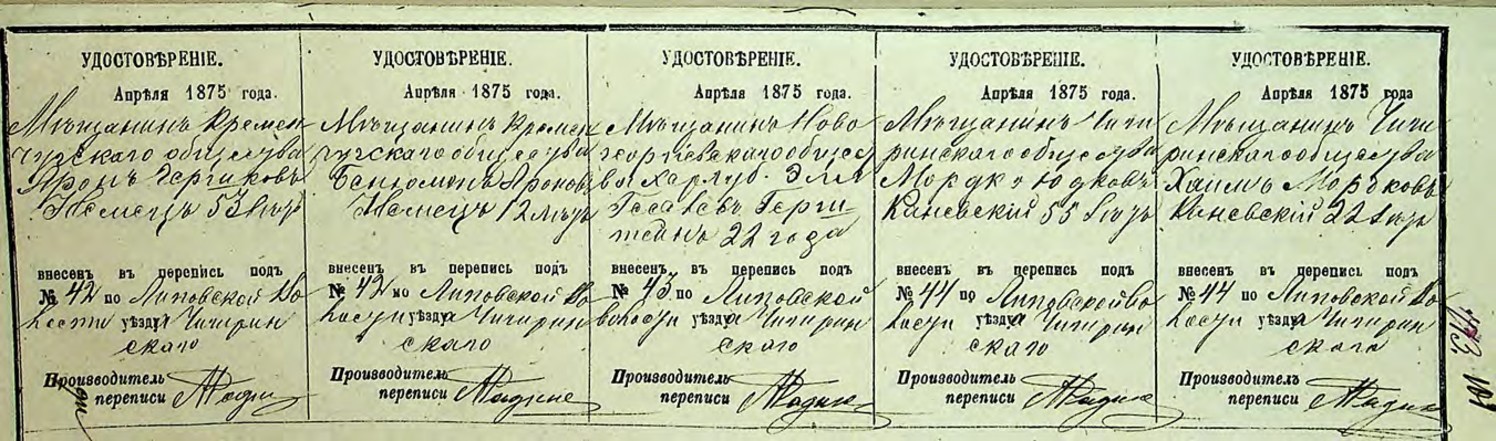 УДОСТОВѢРЕНІЕ.
Апрѣля 1875 года.
Мѣщанинъ Кремен
чугскаго общества
Аронъ
Немецъ 53 лѣтъ
внесенъ въ перепись подъ
№ 42 по Липовской Во
лости уѣзда Чигирин
скаго
Производитель
переписи
УДОСТОВѢРЕНІЕ.
Апрѣля 1875 года.
Мѣщанинъ Кремен
чугскаго общества
Беньюмонъ Ароновъ
Немецъ 12 лѣтъ
внесенъ въ перепись подъ
№ 42 по Липовской Во
лости уѣзда Чигирин
скаго
Производитель
переписи
УДОСТОВѢРЕНІЕ.
Апрѣля 1875 года.
Мѣщанинъ Ново
георгіевскаго общес
ва Эля
Герш
тейнъ 22 года
внесенъ въ перепись подъ
№ 43 по Липовской
волости уѣзда Чигирин
скаго
Производитель
переписи
УДОСТОВѢРЕНІЕ.
Апрѣля 1875 года.
Мѣщанинъ Чиги
ринскаго общества
Мордко Юдковъ
Каневскій 55 лѣтъ
внесенъ въ перепись подъ
№ 44 по Липовской Во
лости уѣзда Чигирин
скаго
Производитель
переписи
УДОСТОВѢРЕНІЕ.
Апрѣля 1875 года
Мѣщанинъ Чиги
ринскаго общества
Хаимъ Мордковъ
Каневскій 22 лѣтъ
внесенъ въ перепись подъ
№ 44 по Липовской Во
лости уѣзда Чигирин
скаго
Производитель
переписи